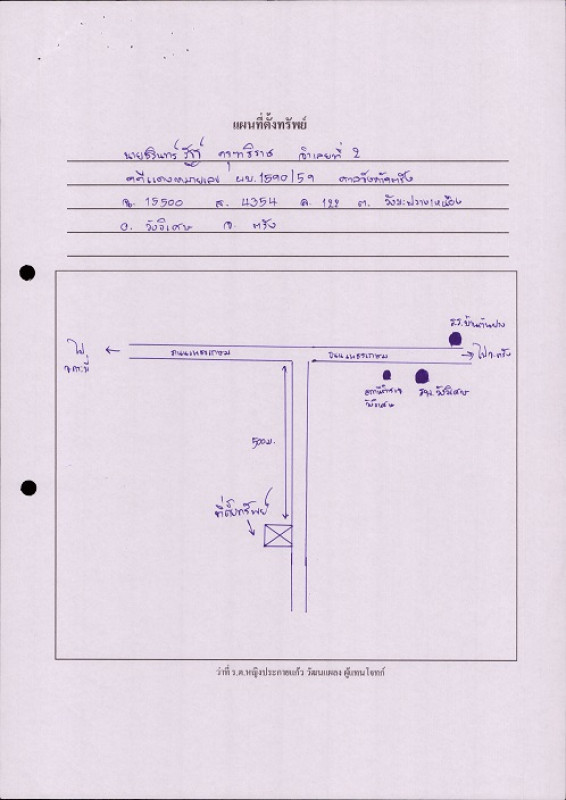 แผนที่ตั้งทรัพย์
จำเลยที่ 2
คดีแดงหมายเลข ผบ.1590/59 ศาลจังหวัดตรัง
ฉ. 15500 ส. 4354 ต. วังมะปรางเหนือ
อ. วังวิเศษ จ. ตรัง
รร.บ้านต้นปราง
ไป
ถนนเพชรเกษม
ถนนเพชรเกษม
ไป จ.ตรัง
จ.กระบี่
สถานีตำรวจ
วังวิเศษ
รพ.วังวิเศษ
500ม.
ที่ตั้งทรัพย์
ว่าที่ ร.ต.หญิงประกายแก้ว วัฒนแผลง ผู้แทนโจทก์